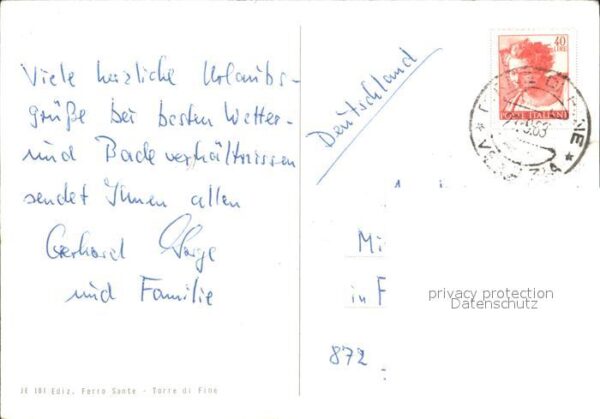 Viele herzliche Urlaubs-
grüße bei besten Wetter-
und Badeverhältnissen
sendet Ihnen allen
Gerhard
und Familie
JE 181 Ediz. Ferro Sante - Torre di Fine
Deutschland
40
LIRE
POSTE ITALIANE
VENEZIA
Mi
in F
872
privacy protection
Datenschutz